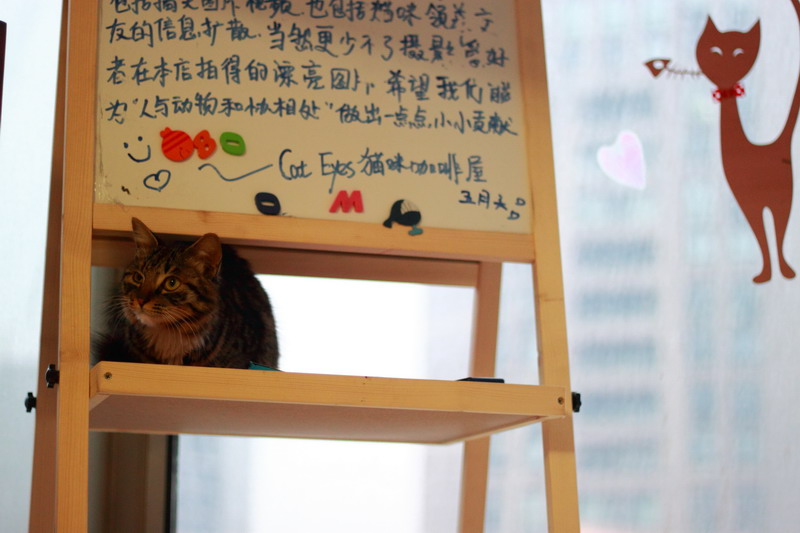 包括猫文图片视频,也包括猫咪领养方
友的信息扩散.当然更少不了摄影爱好
者在本店拍得的漂亮图片.希望我们能
为"人与动物和协相处"做出一点点,小小贡献
Cat Eyes 猫咪咖啡屋
五月六日
O
O M